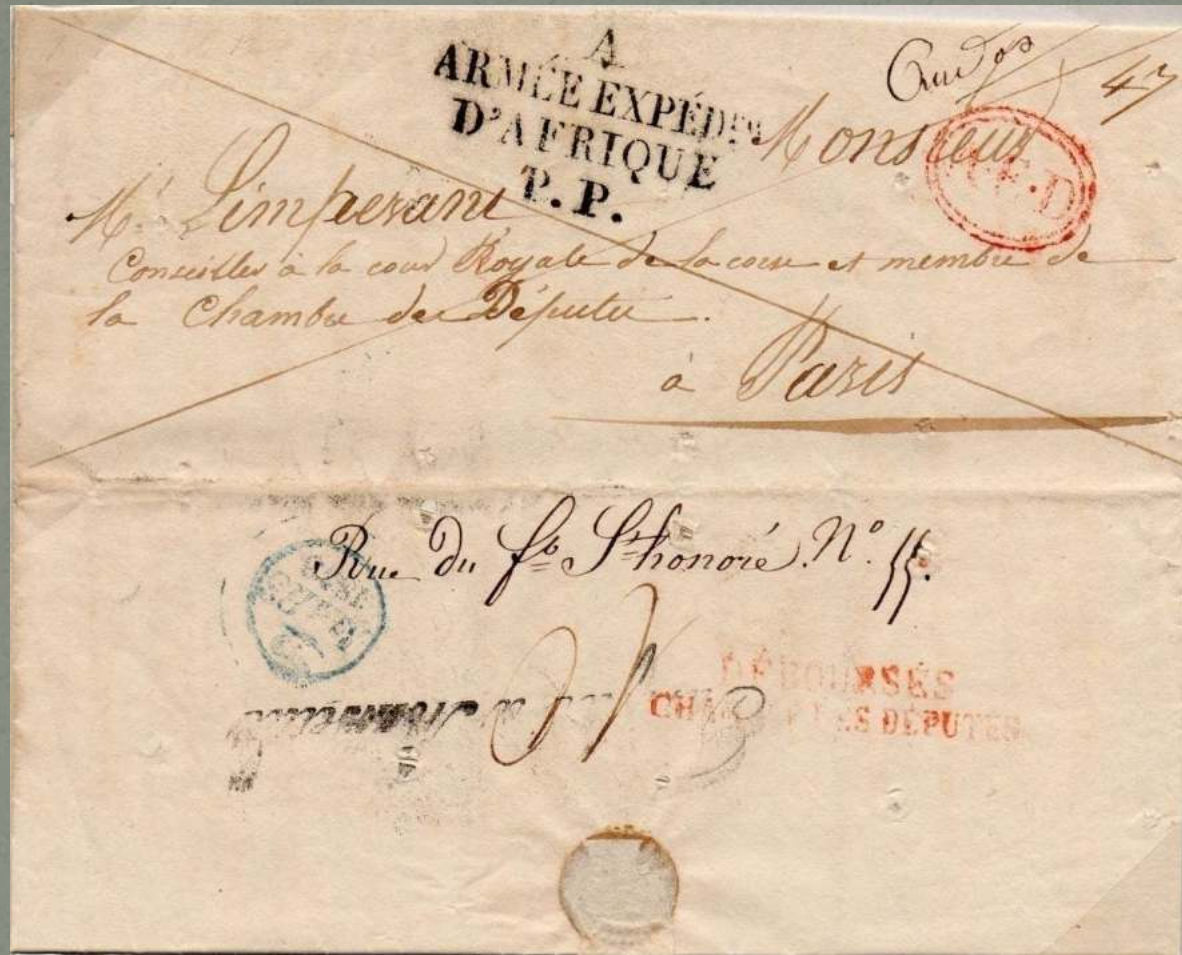 A
ARMÉE EXPÉD.ON
D'AFRIQUE
P. P.
47
Monsieur
P.P.D
Mr. Limperani
Conseiller à la cour Royale de la corse et membre de
la Chambre des Députés.
à Paris
Rue du fg St honoré. No. 55.
DÉBOURSÉS
CHAMBRE DES DÉPUTÉS